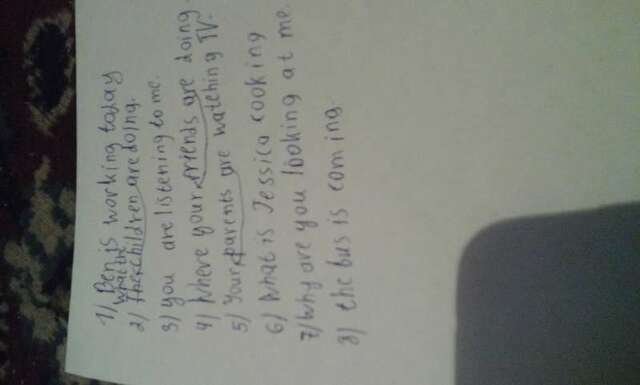 1) Ben is working today
What the
2) The children are doing.
3) you are listening to me.
4) Where your friends are doing.
5) Your parents are watching TV.
6) What is Jessica cooking
7) Why are you looking at me.
8) the bus is coming.